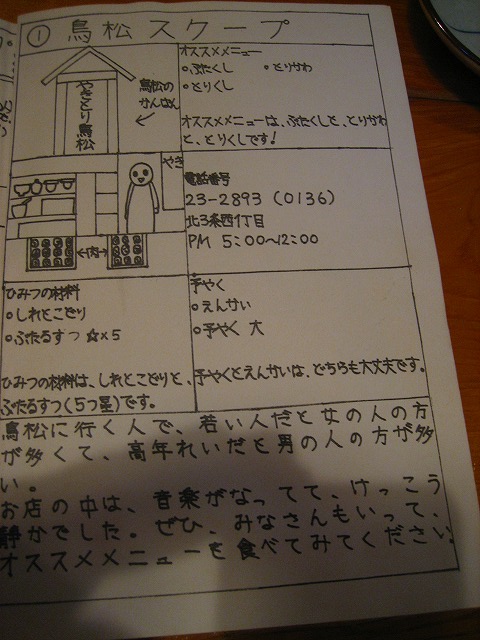 ① 鳥松スクープ
やきとり鳥松
鳥松の
かんばん
オススメメニュー
・ぶたくし ・とりかわ
・とりくし
オススメメニューは、ぶたくしと、とりかわ
と、とりくしです!
やき
←肉→
電話番号
23-2893 (0136)
北3条西4丁目
PM 5:00〜12:00
ひみつの材料
・しれとこどり
・ふたるすつ ☆×5
ひみつの材料は、しれとこどりと、
ふたるすつ(5つ星)です。
予やく
・えんかい
・予やく 大
予やくとえんかいは、どちらも大丈夫です。
鳥松に行く人で、若い人だと女の人の方
が多くて、高年れいだと男の人の方が多
い。
お店の中は、音楽がなってて、けっこう
静かでした。ぜひ、みなさんもいって、
オススメメニューを食べてみてください。